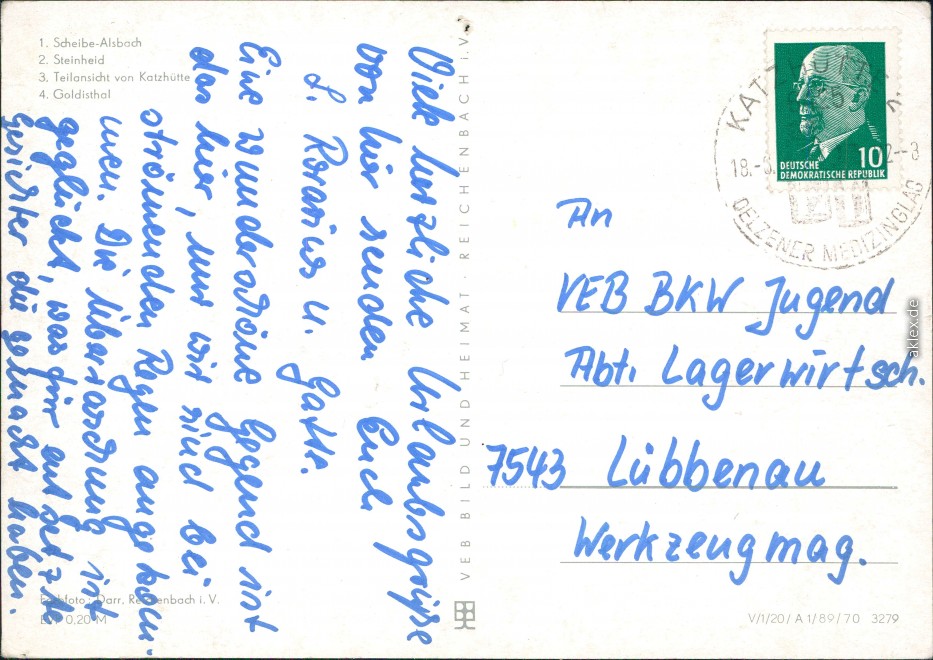 1. Scheibe-Alsbach
2. Steinheid
3. Teilansicht von Katzhütte
4. Goldisthal
Viele herzliche Urlaubsgrüße
von hier senden Euch
u. Gatte.
Eine wunderschöne Gegend ist
das hier, nur wir sind bei
strömenden Regen angekom-
men. Die Überraschung ist
geglückt, was für entsetzte
Gesichter die gemacht haben.
Farbfoto: Darr, Reichenbach i. V.
EVP 0,20 M
VEB BILD UND HEIMAT · REICHENBACH i. V.
DEUTSCHE
DEMOKRATISCHE REPUBLIK
10
KATZHÜTTE
18.-
2--3
OELZENER MEDIZINGLAS
An
VEB BKW Jugend
Abt. Lagerwirtsch.
7543 Lübbenau
Werkzeugmag.
V/1/20/ A 1/89/70 3279
aklex.de